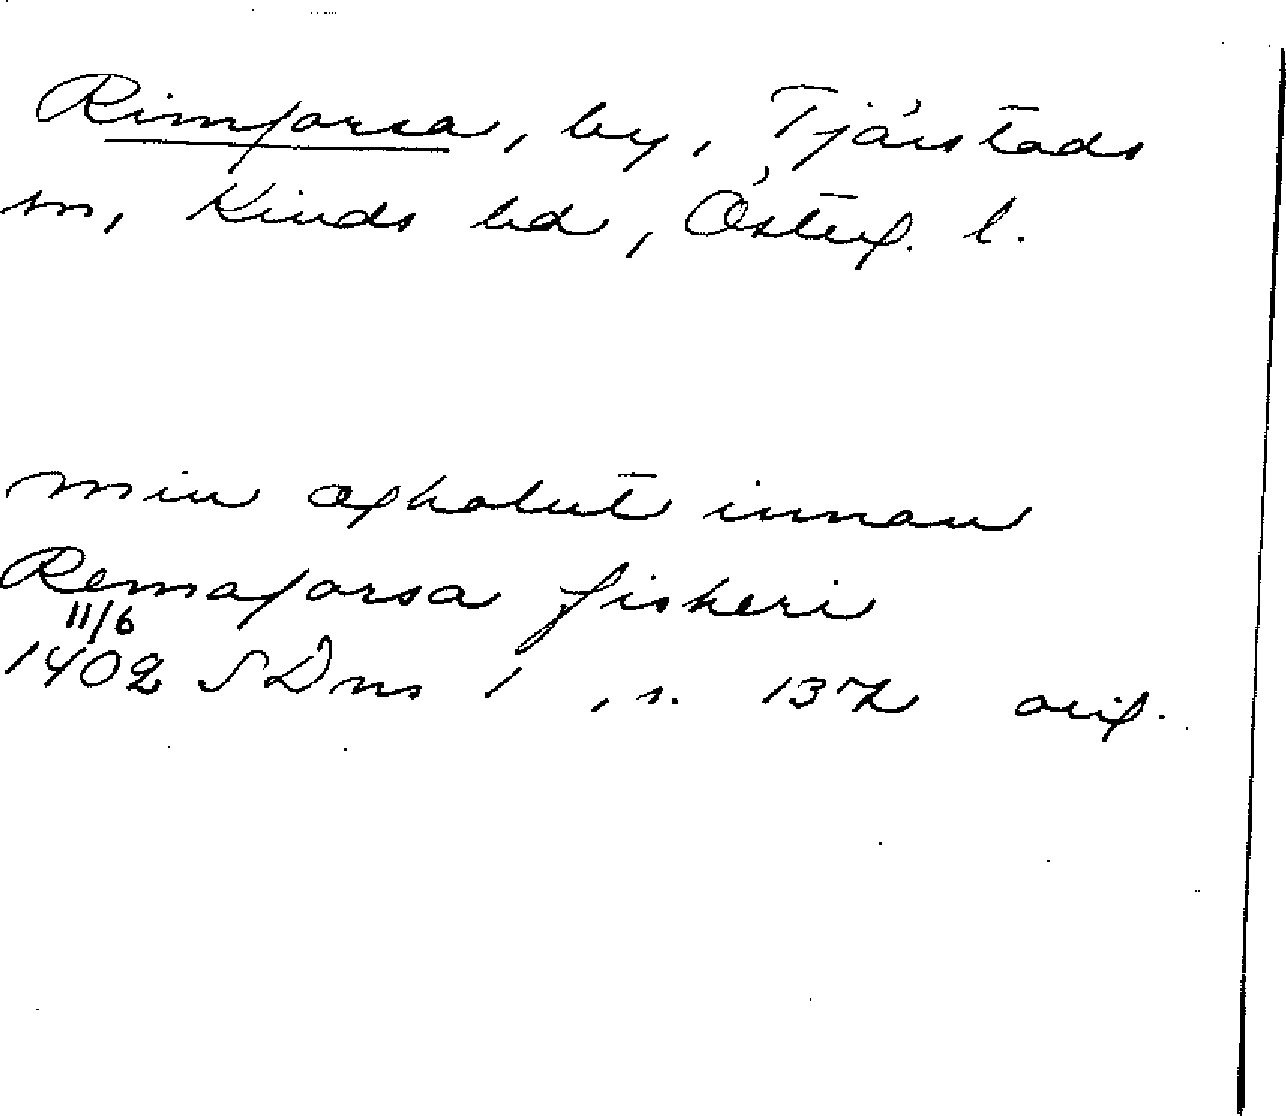 Rimforsa, by, Tjärstads
sn, Kinds hd, Österg. l.
min afhalut innan
Remaforsa fiskeri
11/6
1402 SDns 1, s. 132 orig.